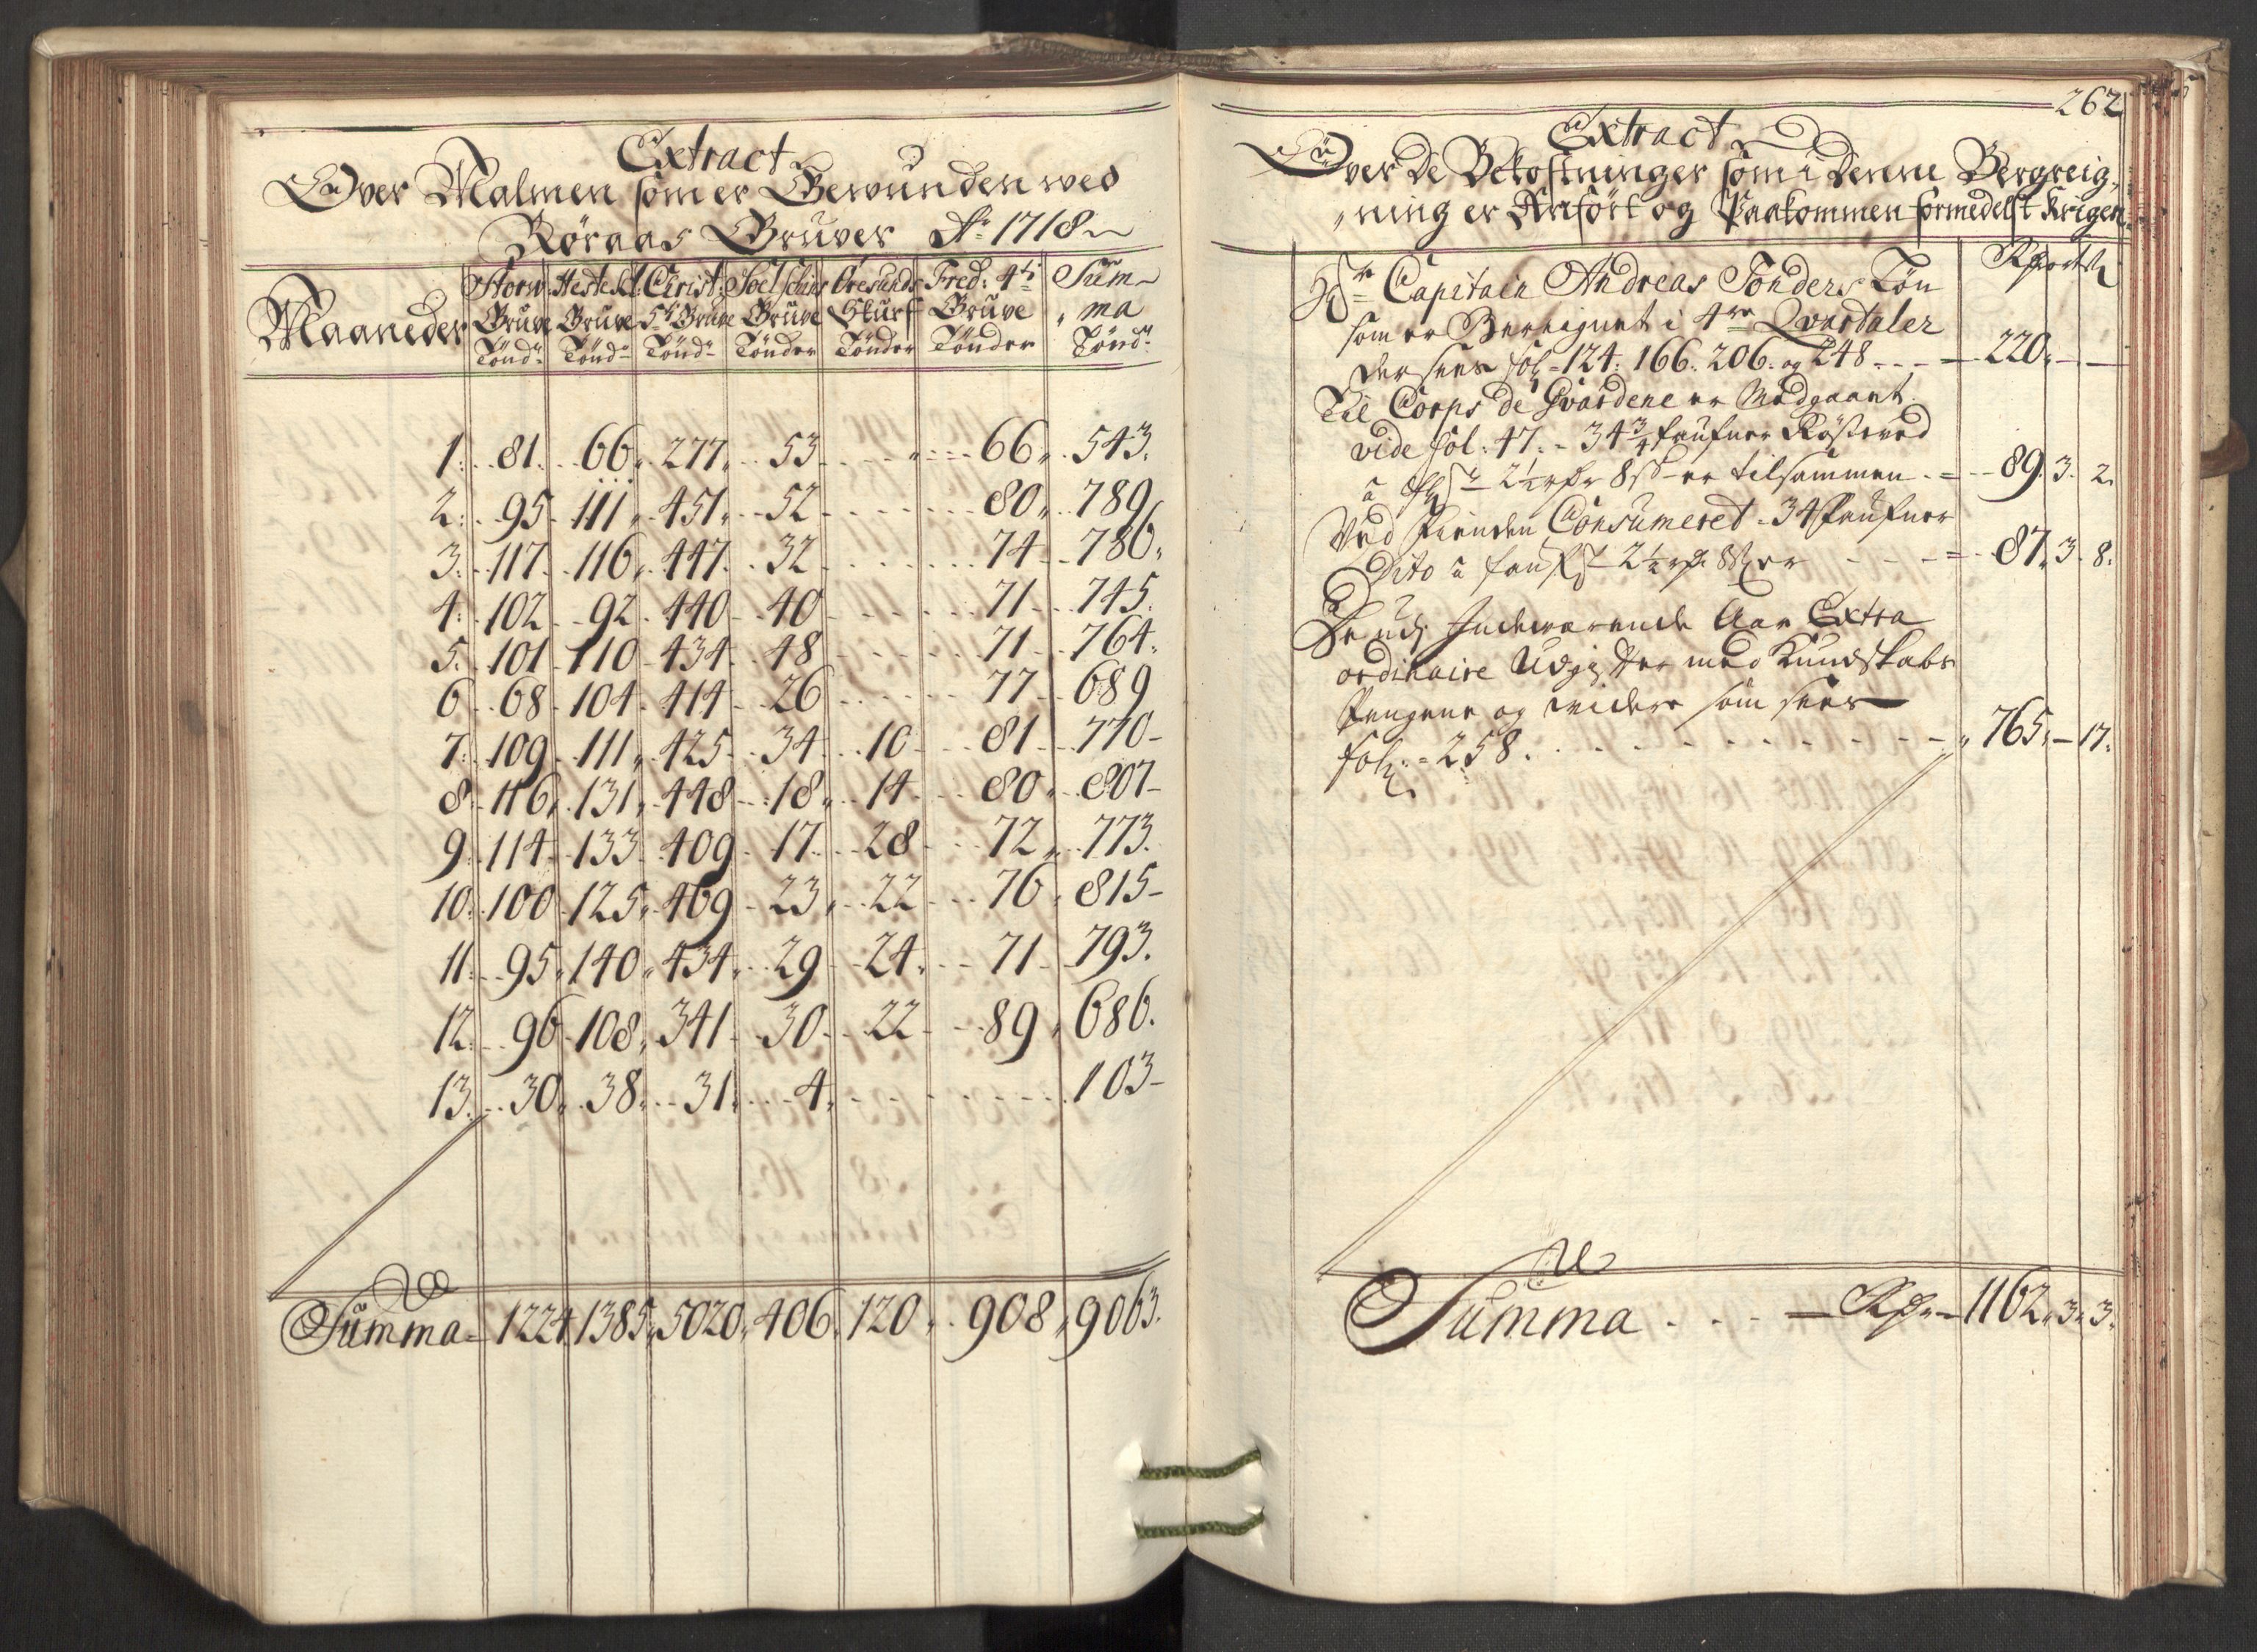 Extract
Over Malmen som er Gewunden wed
Röraas Gruver Ao 1718
Maaneder Storw: Gruve Tönd: Hestekl: Gruve Tönd: Christ: 5ti Gruve Tönd: Soelschins Gruve Tönder Öresunds Skurf Tönder Fred: 4ti Gruve Tönder Sum-ma Tönd:
1. 81. 66. 277. 53 " 66. 543.
2. 95. 111. 451. 52 80. 789
3. 117. 116. 447. 32 74. 786.
4. 102. 92. 440. 40 71. 745.
5. 101. 110. 434. 48 71. 764.
6. 68. 104. 414. 26 77. 689
7. 109. 111. 425. 34. 10. 81. 770-
8. 116. 131. 448. 18. 14. 80. 807-
9. 114. 133. 409. 17. 28. 72. 773.
10. 100. 125. 469. 23. 22. 76. 815-
11. 95. 140. 434. 29. 24. 71. 793.
12. 96. 108. 341. 30. 22. 89. 686.
13. 30. 38. 31. 4. 103-
Summa- 1224. 1385. 5020. 406. 120. 908. 9063.
262
Extract
Over de Bekostninger som i denne Bergreig,
"ning er Anfört og Paakommen formedelst Krigen.
Rdr ort ß
Hr Capitain Andreas Tonders Lön
som er Bereignet i 4re Qvartaler
der sees fol- 124. 166. 206. og 248 - - - 220. - -
Til Corps de Gvardene er Medgaaet
vide fol. 47. - 34 3/4 faufner Rösteved
a 2 1/2 rdr 8 ß er tilsammen. = 89. 3. 2.
Ved Fienden Consumeret - 34 faufner
Dito a fauf: 2 1/2 rdr 8 ß er - - - = 87. 3. 8.
Indewærende Aar Extra
ordinaire Udgifter med Kundskabs
Pengene og widere som sees
fol: = 258. - - - 765. - 17.
Summa . . . - Rdr - 1162. 3. 3.